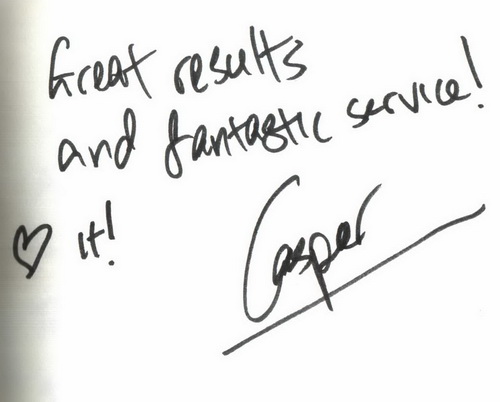 Great results
and fantastic service!
♡ it!
Casper